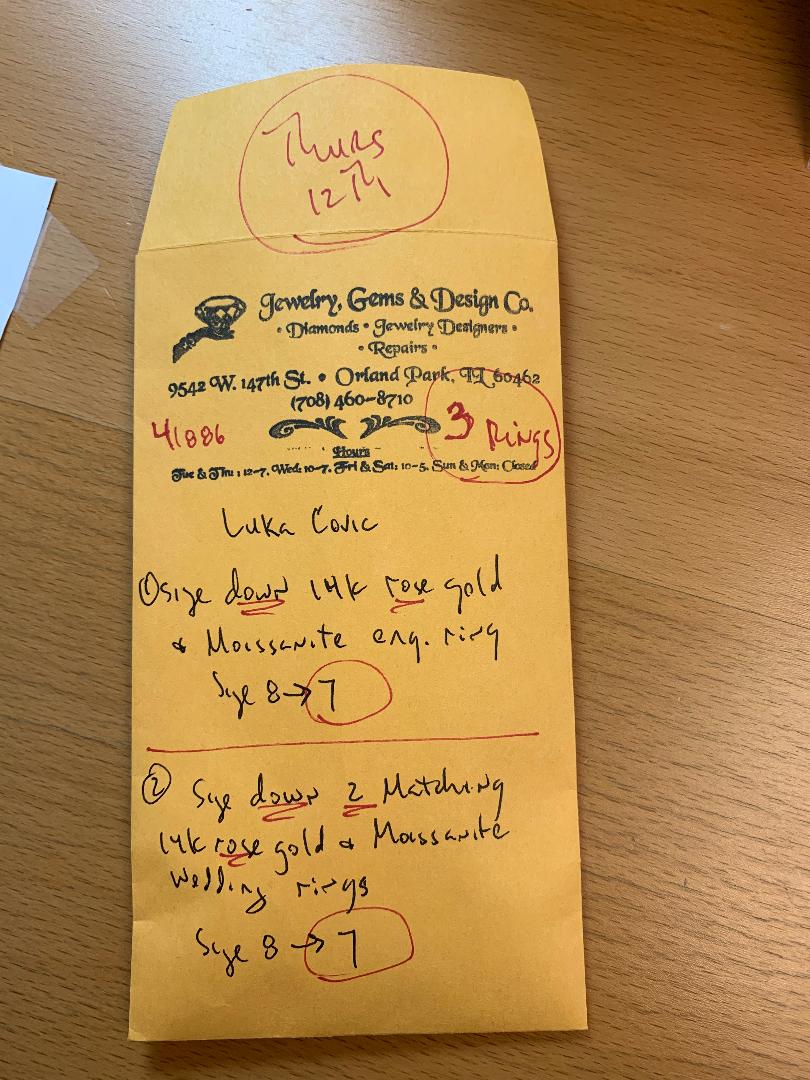 Thurs
12Th
Jewelry, Gems & Design Co.
• Diamonds • Jewelry Designers •
• Repairs •
9542 W. 147th St. • Orland Park, IL 60462
(708) 460-8710
41886
3 Rings
Hours
Tue & Thu: 12-7, Wed: 10-7, Fri & Sat: 10-5, Sun & Mon: Closed
Luka Čović
① Size down 14k rose gold
& Moissanite eng. ring
Size 8 → 7
② Size down 2 Matching
14k rose gold & Moissanite
wedding rings
Size 8 → 7